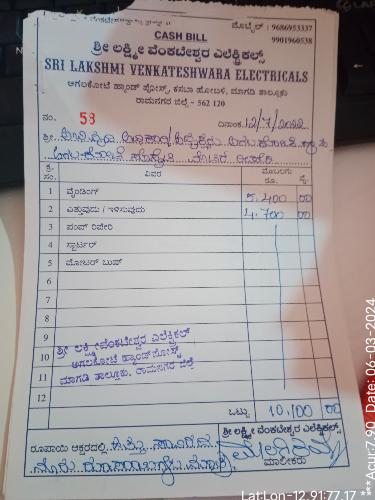 CASH BILL
ಮೊಬೈಲ್ : 9686953337
9901960538
ಶ್ರೀ ಲಕ್ಷ್ಮೀ ವೆಂಕಟೇಶ್ವರ ಎಲೆಕ್ಟ್ರಿಕಲ್ಸ್
SRI LAKSHMI VENKATESHWARA ELECTRICALS
ಅಗಲಕೋಟೆ ಹ್ಯಾಂಡ್ ಪೋಸ್ಟ್, ಕಸಬಾ ಹೋಬಳಿ, ಮಾಗಡಿ ತಾಲ್ಲೂಕು
ರಾಮನಗರ ಜಿಲ್ಲೆ - 562 120
ನಂ. 53 ದಿನಾಂಕ 12/7/2022
ಶ್ರೀ
ಕ್ರ. ಸಂ. ವಿವರ ಮೊಬಲಗು ರೂ. ಪೈ.
1 ವೈಂಡಿಂಗ್ 5.400 00
2 ಎತ್ತುವುದು / ಇಳಿಸುವುದು 4.700 00
3 ಪಂಪ್ ರಿಪೇರಿ
4 ಸ್ಟಾರ್ಟರ್
5 ಮೋಟರ್ ಬುಷ್
6
7
8
9 ಶ್ರೀ ಲಕ್ಷ್ಮೀ ವೆಂಕಟೇಶ್ವರ ಎಲೆಕ್ಟ್ರಿಕಲ್ಸ್
10 ಅಗಲಕೋಟೆ ಹ್ಯಾಂಡ್ ಪೋಸ್ಟ್
11 ಮಾಗಡಿ ತಾಲ್ಲೂಕು. ರಾಮನಗರ ಜಿಲ್ಲೆ
12
ಒಟ್ಟು 10,100 00
ಶ್ರೀ ಲಕ್ಷ್ಮೀ ವೆಂಕಟೇಶ್ವರ ಎಲೆಕ್ಟ್ರಿಕಲ್ಸ್
ರೂಪಾಯಿ ಅಕ್ಷರದಲ್ಲಿ ಹತ್ತು ಸಾವಿರದ
ನೂರು ರೂಪಾಯಿಗಳು ಮಾತ್ರ ಮಾಲೀಕರು
LatLon-12.91:77.17 ***Acur:7.90 Date: 06-03-2024